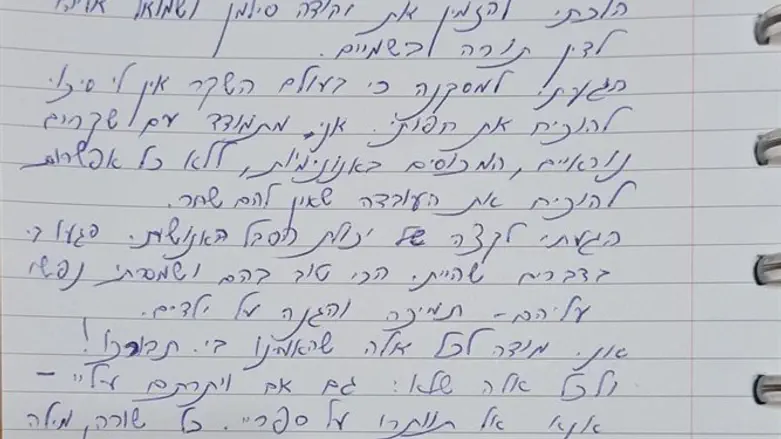 הולכתי להזמין את יהודה סילמן ושמואל אליהו
לדין תורה בשמיים.
הגעתי למסקנה כי בעולם השקר אין לי סיכוי
להוכיח את חפותי. אני מתמודד עם שקרים
נוראיים, המכוסים באנונימיות, ללא כל אפשרות
להוכיח את העובדה שאין להם שחר.
הגעתי לקצה של יכולת הסבל האנושית. פגעו בי
בדברים שהייתי הכי טוב בהם ושמסרתי נפשי
עליהם - תמיכה והגנה על ילדים.
אני מודה לכל אלה שהאמינו בי. תבורכו!
ולכל אלה שלא: גם אם ויתרתם עליי -
אנא אל תוותרו על ספריי. כל שורה, מילה